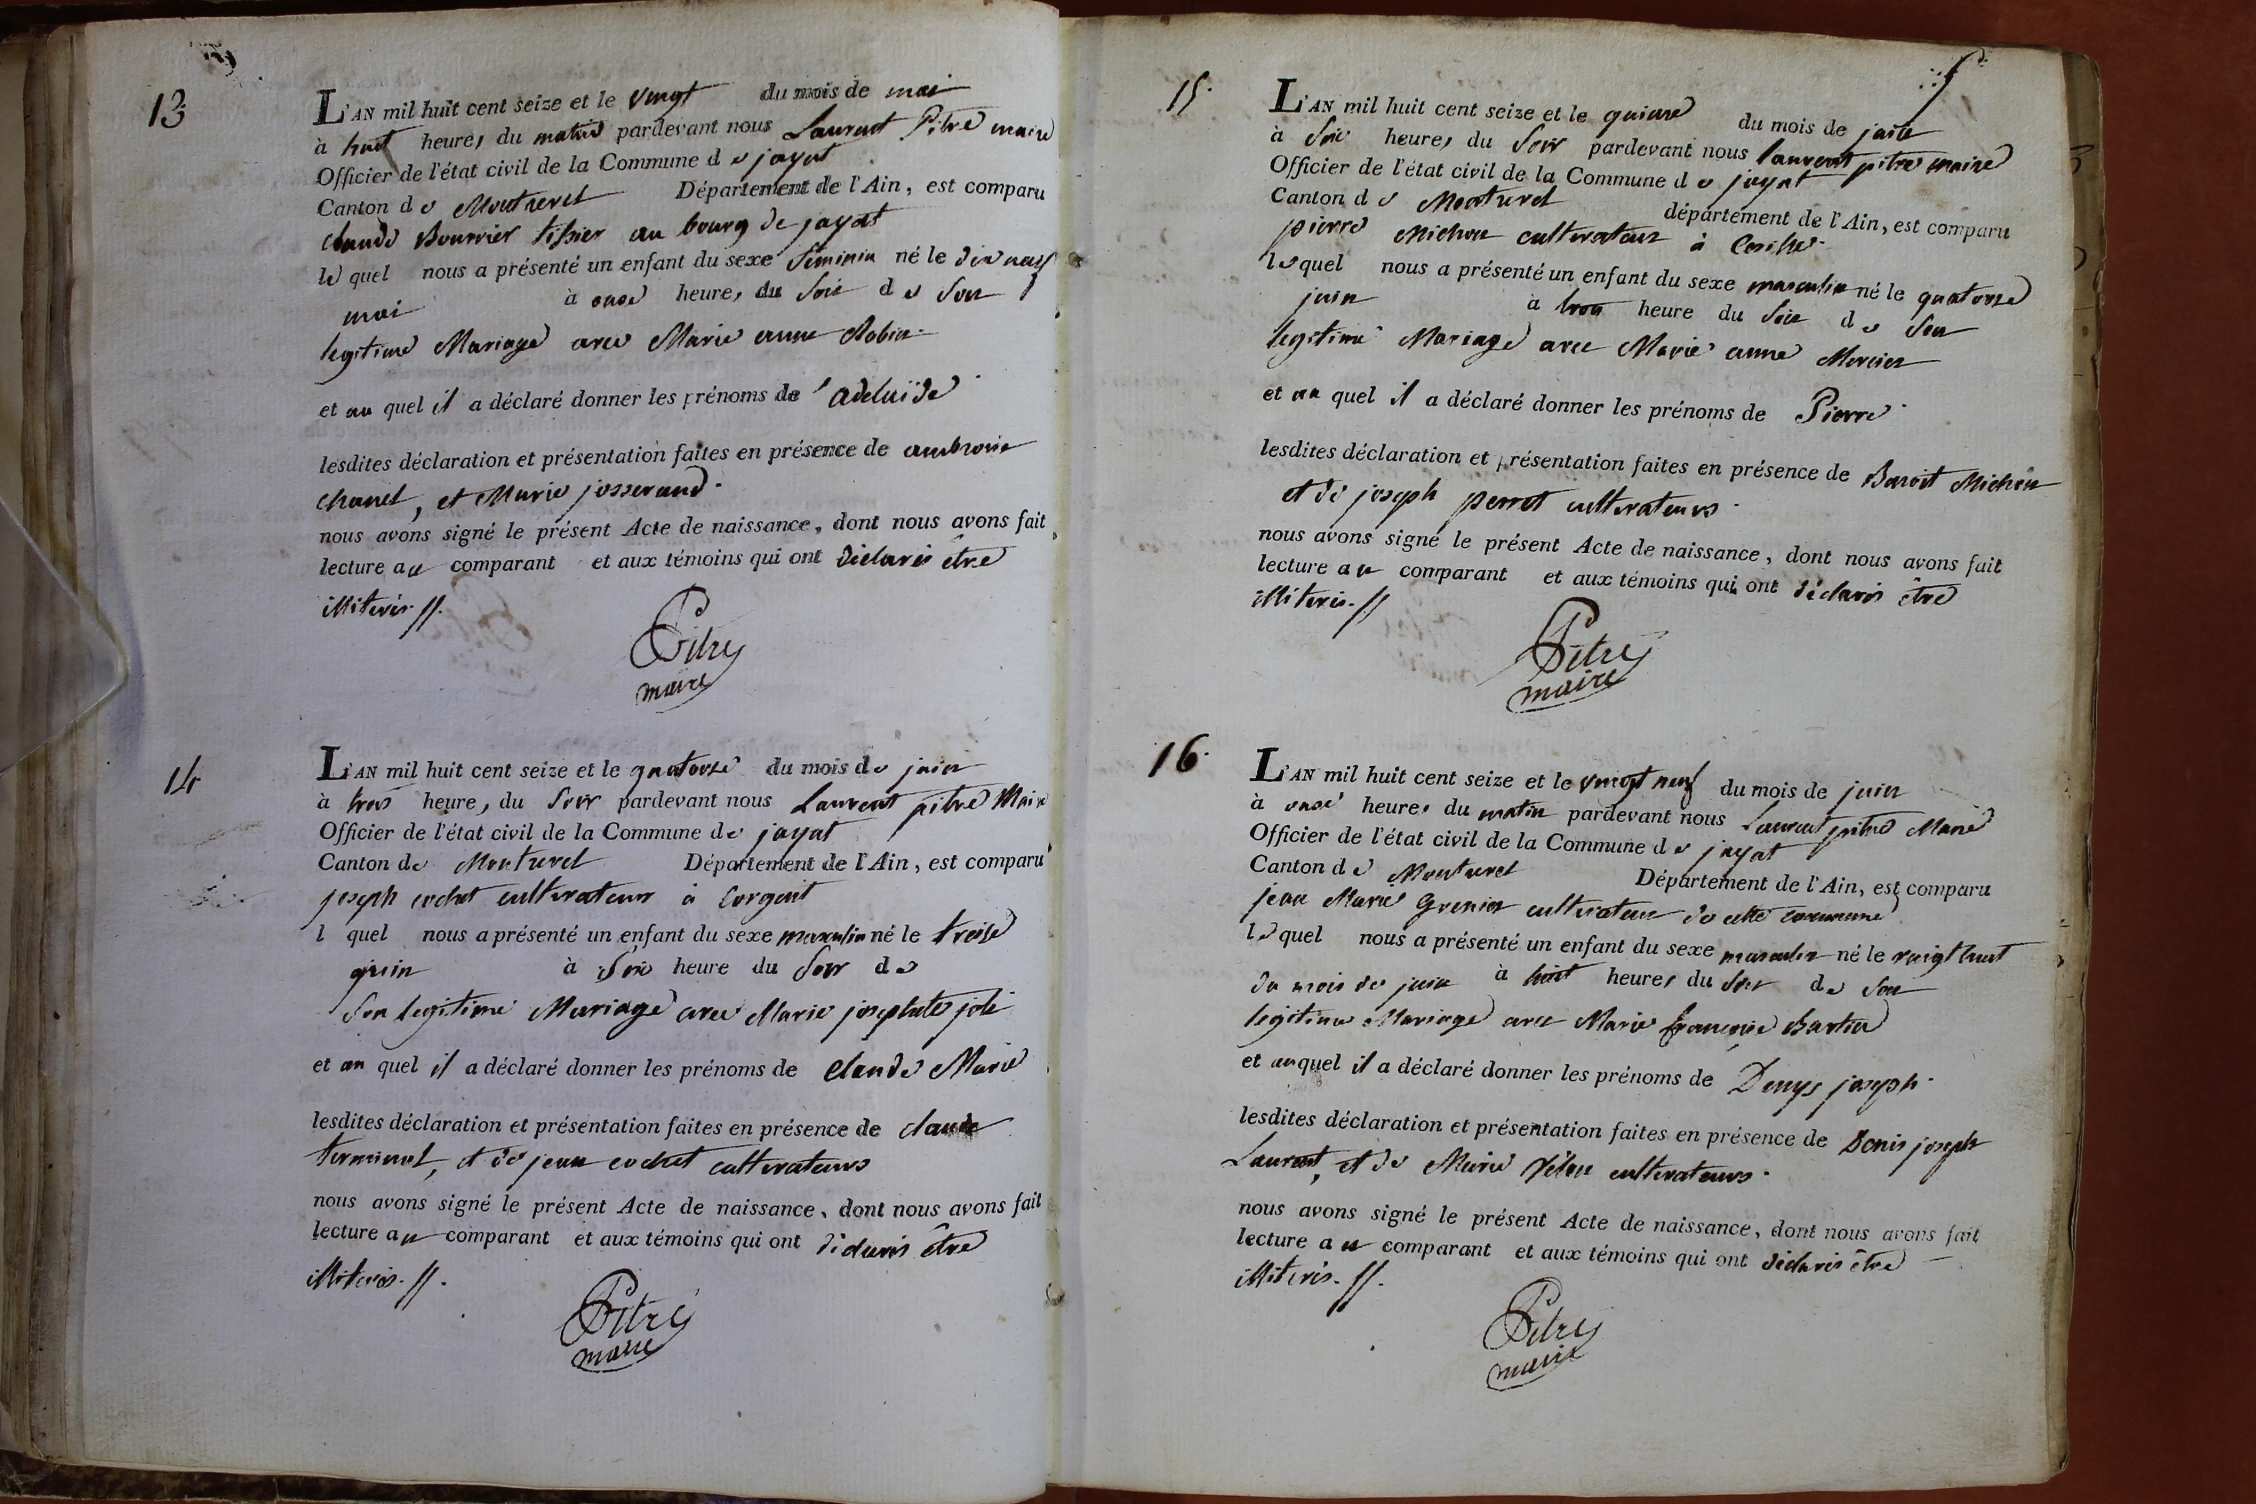 13
L'AN mil huit cent seize et le vingt du mois de mai
à huit heures du matin pardevant nous Laurent Pitre maire
Officier de l'état civil de la Commune de jayat
Canton de Montrevel Département de l'Ain, est comparu
claude Bourrier tissier au bourg de jayat
lequel nous a présenté un enfant du sexe féminin né le dix neuf
mai à onze heures du soir de son
legitime Mariage avec Marie anne Robin
et au quel il a déclaré donner les prénoms de adelaïde
lesdites déclaration et présentation faites en présence de ambroise
chanel, et Marie josserand.
nous avons signé le présent Acte de naissance, dont nous avons fait
lecture au comparant et aux témoins qui ont déclarés être
illiterés.//.
Pitre
maire
14
L'AN mil huit cent seize et le quatorze du mois de juin
à trois heures du soir pardevant nous Laurent pitre Maire
Officier de l'état civil de la Commune de jayat
Canton de Montrevel Département de l'Ain, est comparu
joseph cochet cultivateur à Corgent
l quel nous a présenté un enfant du sexe masculin né le treize
juin à six heure du soir de
son legitime Mariage avec Marie josephte joli
et au quel il a déclaré donner les prénoms de claude Marie
lesdites déclaration et présentation faites en présence de claude
et de jean cochet cultivateurs
nous avons signé le présent Acte de naissance, dont nous avons fait
lecture au comparant et aux témoins qui ont déclarés être
illiterés.//.
Pitre
maire
15.
L'AN mil huit cent seize et le quinze du mois de juin
à six heures du soir pardevant nous laurent pitre maire
Officier de l'état civil de la Commune de jayat
Canton de Montrevel département de l'Ain, est comparu
pierre Michon cultivateur à
lequel nous a présenté un enfant du sexe masculin né le quatorze
juin à trois heure du soir de son
legitime Mariage avec Marie anne Mercier
et au quel il a déclaré donner les prénoms de Pierre
lesdites déclaration et présentation faites en présence de Benoit Michon
et de joseph perret cultivateurs.
nous avons signé le présent Acte de naissance, dont nous avons fait
lecture au comparant et aux témoins qui ont déclarés être
illiterés.//
Pitre
maire
16.
L'AN mil huit cent seize et le vingt neuf du mois de juin
à onze heures du matin pardevant nous Laurent pitre Maire
Officier de l'état civil de la Commune de jayat
Canton de Montrevel Département de l'Ain, est comparu
jean Marie Grenier cultivateur de cette commune
lequel nous a présenté un enfant du sexe masculin né le vingt huit
du mois de juin à huit heures du soir de son
legitime Mariage avec Marie françoise
et auquel il a déclaré donner les prénoms de Denys joseph.
lesdites déclaration et présentation faites en présence de Denis joseph
Laurent, et de Marie cultivateurs.
nous avons signé le présent Acte de naissance, dont nous avons fait
lecture au comparant et aux témoins qui ont déclarés être
illiterés.//.
Pitre
maire